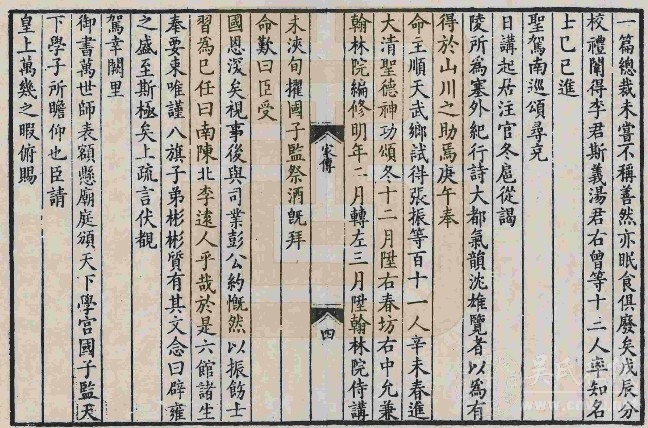 一篇總裁未嘗不稱善然亦眠食俱廢矣戊辰分
校禮闈得李君斯義湯君右曾等十三人率知名
士己巳進
聖駕南巡頌尋充
日講起居注官冬扈從謁
陵所爲塞外紀行詩大都氣韻沈雄覽者以爲有
得於山川之助焉庚午奉
命主順天武鄉試得張振等百十一人辛未春進
大清聖德神功頌冬十二月陞右春坊右中允兼
翰林院編修明年二月轉左三月陞翰林院侍講
家傳
四
未浹旬擢國子監祭酒旣拜
命歎曰臣受
國恩深矣視事後與司業彭公約慨然以振飭士
習爲己任曰南陳北李遠人乎哉於是六館諸生
奉要束唯謹八旗子弟彬彬質有其文念曰辟雍
之盛至斯極矣上疏言伏覩
駕幸闕里
御書萬世師表額懸廟庭頒天下學宮國子監天
下學子所瞻仰也臣請
皇上萬幾之暇俯賜